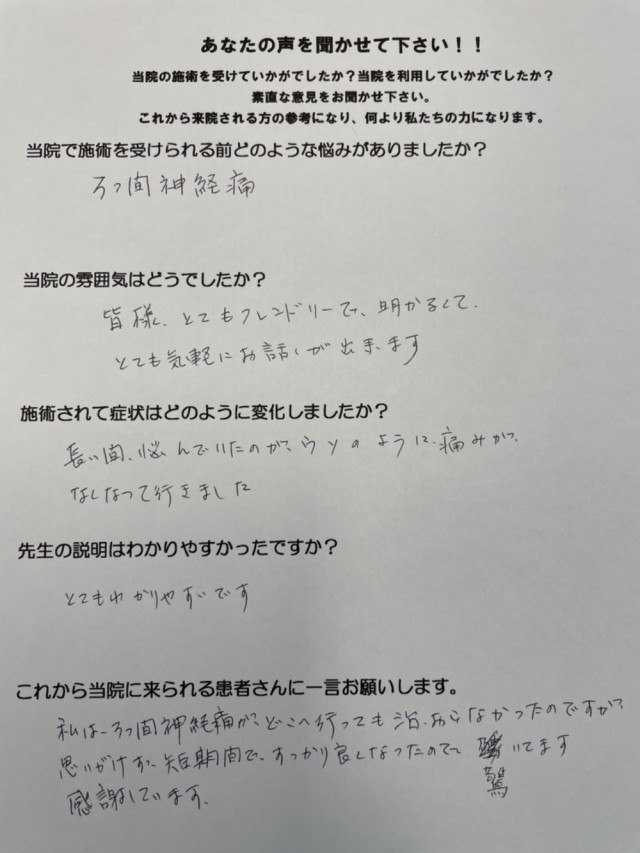 あなたの声を聞かせて下さい！！
当院の施術を受けていかがでしたか？当院を利用していかがでしたか？
素直な意見をお聞かせ下さい。
これから来院される方の参考になり、何より私たちの力になります。
当院で施術を受けられる前どのような悩みがありましたか？
ろっ間神経痛
当院の雰囲気はどうでしたか？
皆様、とてもフレンドリーで、明かるくて、
とても気軽にお話しが出来ます
施術されて症状はどのように変化しましたか？
長い間、悩んでいたのが、ウソのように、痛みが、
なくなって行きました
先生の説明はわかりやすかったですか？
とてもわかりやすいです
これから当院に来られる患者さんに一言お願いします。
私は、ろっ間神経痛が、どこへ行っても治おらなかったのですが、
思いがけず、短期間で、すっかり良くなったので、驚いてます
感謝しています。